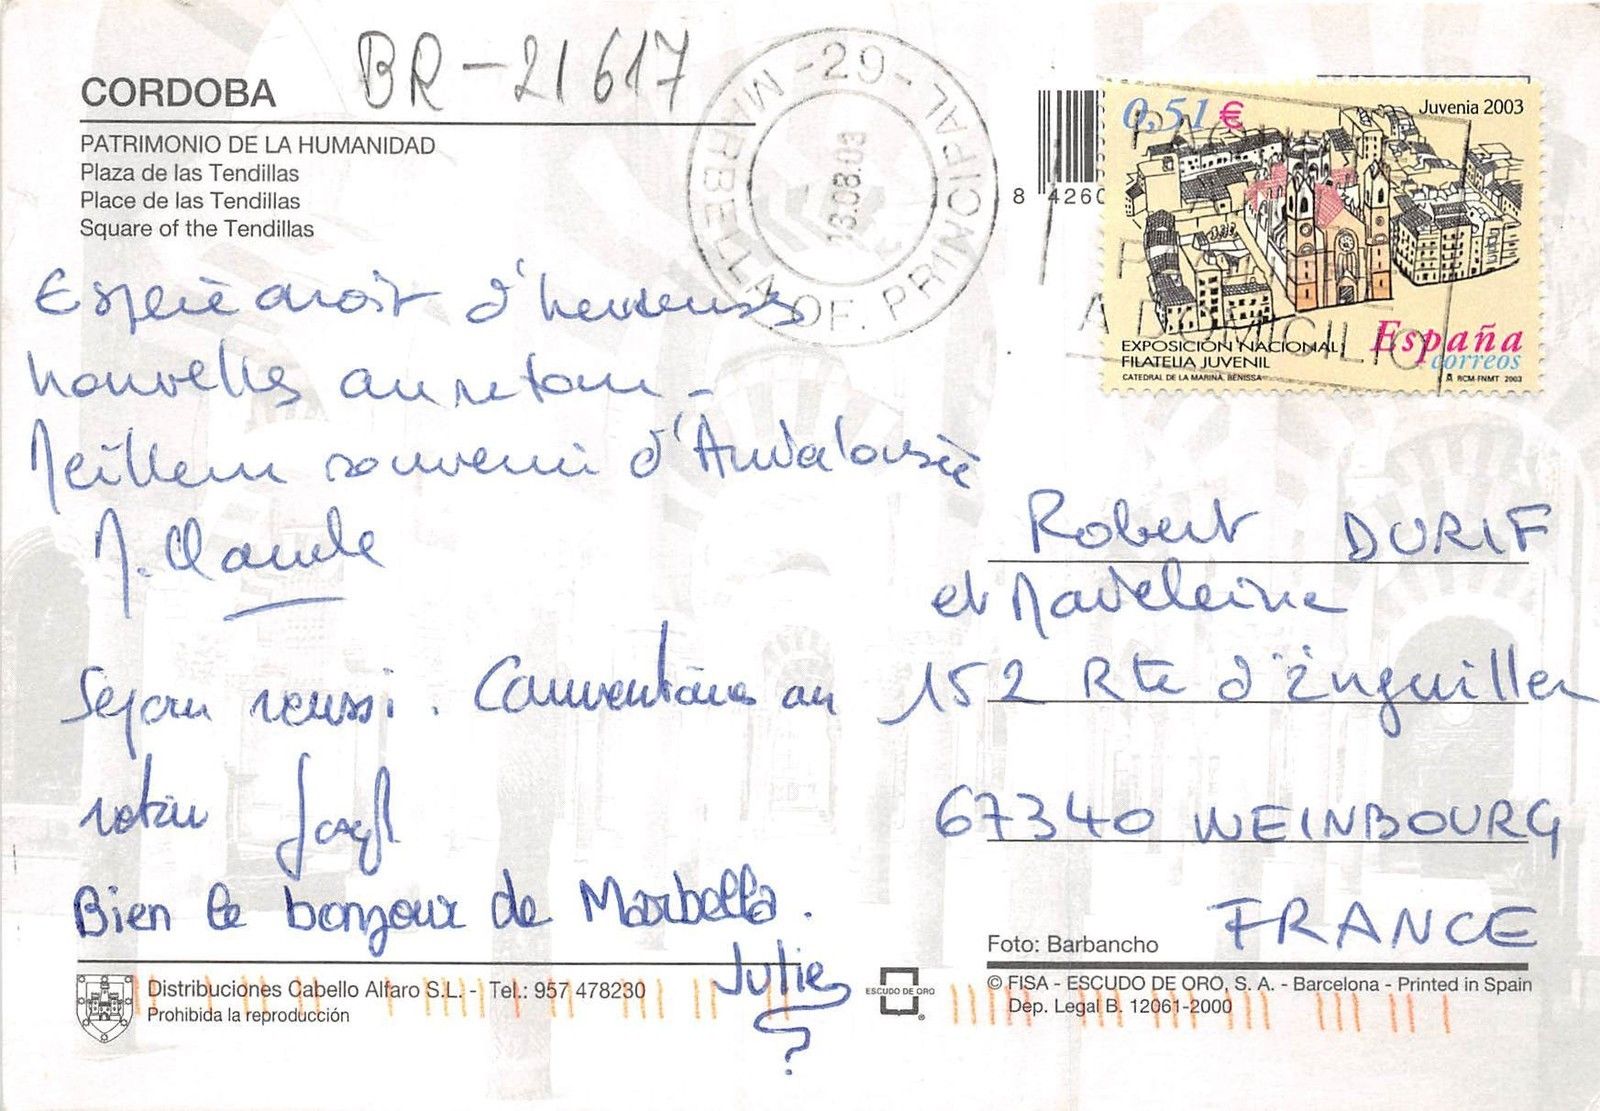 BR-21617
CORDOBA
PATRIMONIO DE LA HUMANIDAD
Plaza de las Tendillas
Place de las Tendillas
Square of the Tendillas
-29-
MARBELLA OF. PRINCIPAL
13.08.03
8 4260
0,51 €
Juvenia 2003
EXPOSICIÓN NACIONAL
FILATELIA JUVENIL
CATEDRAL DE LA MARINA. BENISSA
España
correos
RCM-FNMT 2003
A DOMICILIO
d'heureuses
nouvelles au retour -
Meilleur souvenir d'Andalousie
M. Claude
Sejour reussi. au
retour
Bien le bonjour de Marbella.
Julie
?
Robert DURIF
et Madeleine
152 Rte d'Inguiller
67340 WEINBOURG
FRANCE
Foto: Barbancho
Distribuciones Cabello Alfaro S.L. - Tel.: 957 478230
Prohibida la reproducción
ESCUDO DE ORO
®
© FISA - ESCUDO DE ORO, S. A. - Barcelona - Printed in Spain
Dep. Legal B. 12061-2000